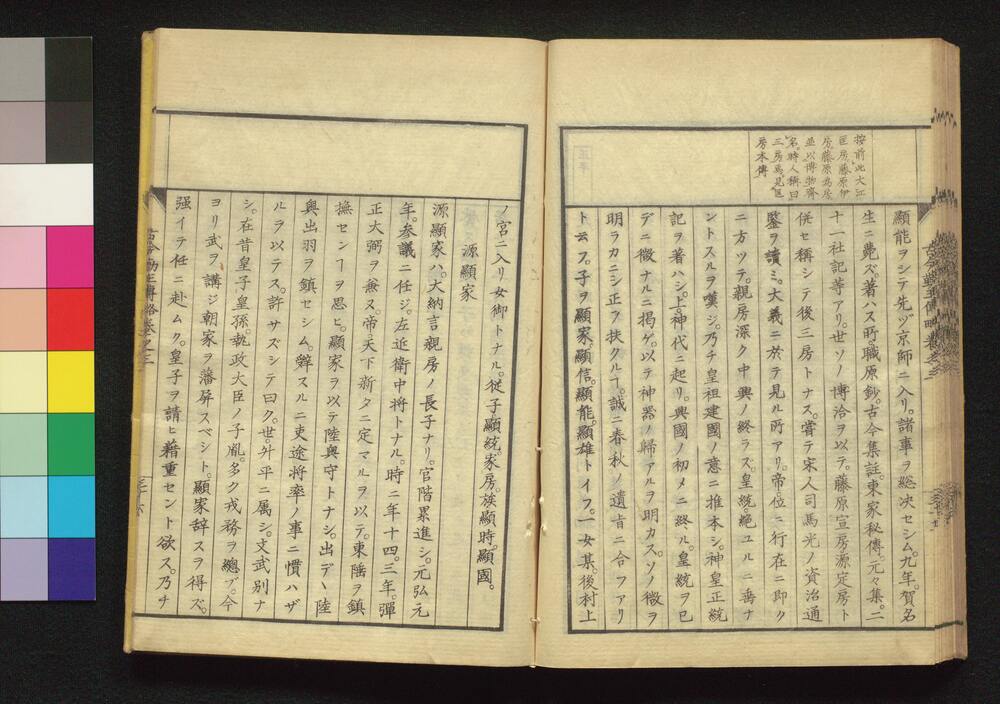 按前此大江
匡房藤原伊
房藤原為房
並以博物齊
名時人稱曰
三房馬見匡
房本傳
顯能ヲシテ先ヅ京師ニ入リ。諸事ヲ総決セシム。九年。賀名
生ニ薨ズ。著ハス所。職原鈔。古今集註。東家秘傳。元々集。二
十一社記等アリ。世ソノ博洽ヲ以テ。藤原宣房源定房ト
併セ稱シテ後三房トナス。嘗テ宋人司馬光ノ資治通
鑒ヲ讀ミ。大義ニ於テ見ル所アリ。帝。位ニ行在ニ即ク
ニ方ツテ。親房深ク中興ノ終ラズ。皇統。絕ユルニ垂ナ
ントスルヲ嘆ジ。乃チ皇祖建國ノ意ニ推本シ。神皇正統
記ヲ著ハシ。上。神代ニ起リ。興國ノ初メニ終ル。皇統ヲ已
デニ微ナルニ揭ゲ。以テ神器ノ歸アルヲ明カス。ソノ微ヲ
明ラカニシ正ヲ扶クルヿ。誠ニ春秋ノ遺旨ニ合フアリ
ト云フ。子ヲ顯家。顯信。顯能。顯雄トイフ。一女某。後村上
ノ宮ニ入リ女御トナル。従子顯統。家房。族顯時。顯國。
源顯家
源顯家ハ。大納言親房ノ長子ナリ。官階累進シ。元弘元
年。参議ニ任ジ。左近衛中将トナル。時ニ年十四。三年。彈
正大弼ヲ兼ヌ。帝。天下新タニ定マルヲ以テ。東陲ヲ鎮
撫センヿヲ思ヒ。顯家ヲ以テ陸奥守トナシ。出デヽ陸
奥出羽ヲ鎮セシム。辭スルニ吏途将率ノ事ニ慣ハザ
ルヲ以テス。許サズシテ曰ク。世。升平ニ属シ。文武別ナ
シ。在昔皇子皇孫。執政大臣ノ子胤。多ク戎務ヲ總ブ。今
ヨリ武ヲ講ジ朝家ヲ藩屏スベシト。顯家辞スヲ得ズ。
强イテ任ニ赴ムク。皇子ヲ請ヒ藉重セント欲ス。乃チ